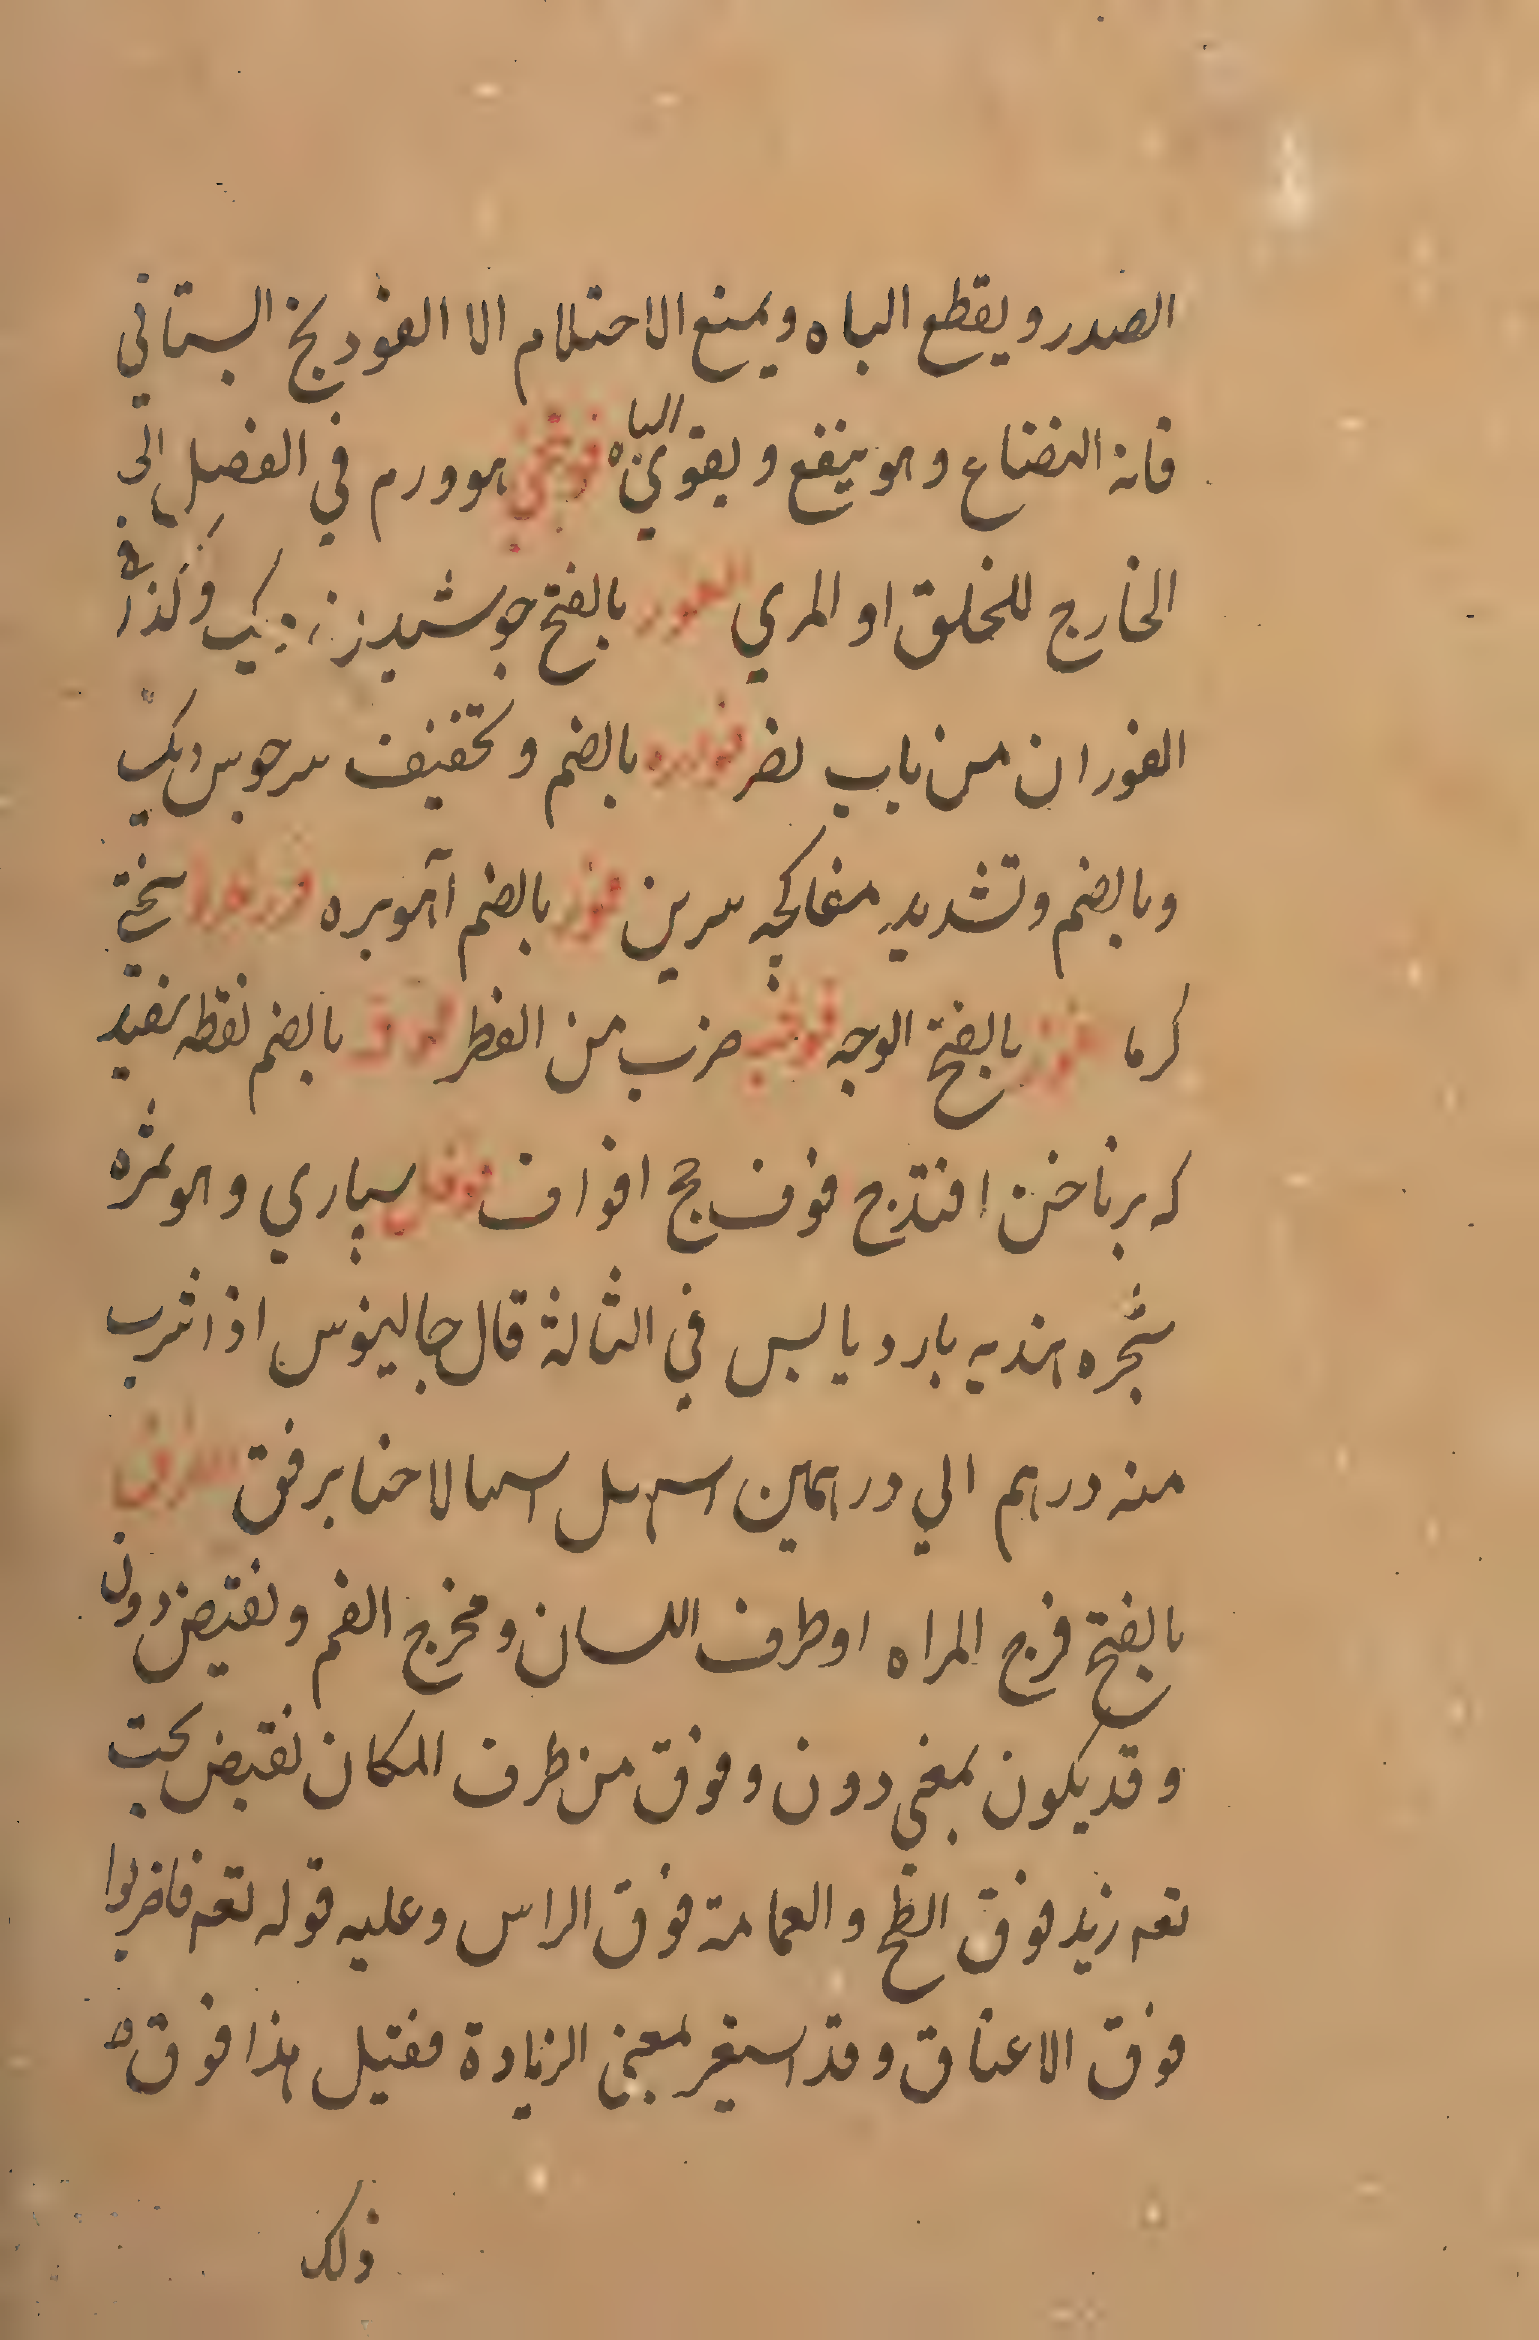 الصدر ويقطع الباه ويمنع الاحتلام الا الفوديخ البستاني
فانه النضاع وهو ينفع ويقوي الباه فونجني هو ورم في الفصل الى
الخارج للحلق او المري الفور بالفتح جوشيدن ديك وكذا في
الفوران من باب نصر فوره بالضم وتخفيف سرجوس ديك
وبالضم وتشديد مفاكچه سرين فور بالضم آهوبره سختي
كرما فوز بالفتح الوجه ضرب من الفطر فوف بالضم نقطه سفيد
كه برناخن افتد ج فوف جج افواف فوفل سپاري وهو ثمره
شجره هنديه بارد يابس في الثالثة قال جالينوس اذا شرب
منه درهم الي درهمين اسهل اسهالا حنا برفق
بالفتح فرج المراه او طرف اللسان ومخرج الفم ونقيض دون
وقد يكون بمعني دون وفوق من طرف المكان نقيض تحت
نعه زيد فوق السطح والعمامة فوق الراس وعليه قوله تعه فاضربوا
فوق الاعناق وقد استعير بمعنى الزيادة فقيل هذا فوق
ذلك